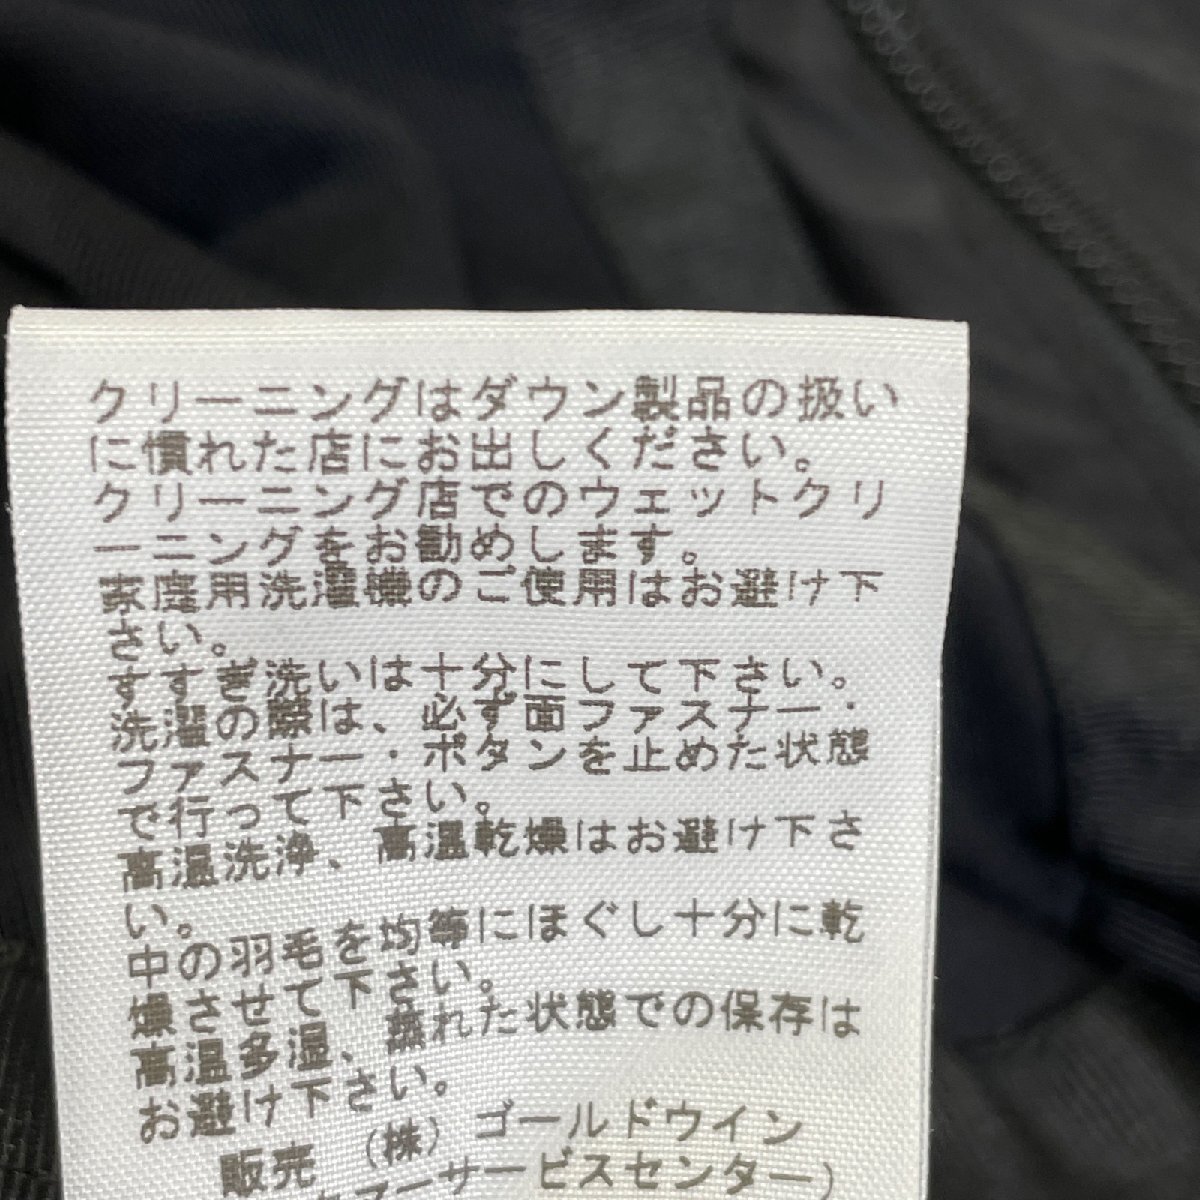 クリーニングはダウン製品の扱い
に慣れた店にお出しください。
クリーニング店でのウェットクリ
ーニングをお勧めします。
家庭用洗濯機のご使用はお避け下
さい。
すすぎ洗いは十分にして下さい。
洗濯の際は、必ず面ファスナー・
ファスナー・ボタンを止めた状態
で行って下さい。
高温洗浄、高温乾燥はお避け下さ
い。
中の羽毛を均等にほぐし十分に乾
燥させて下さい。
高温多湿、蒸れた状態での保存は
お避け下さい。
販売 (株) ゴールドウイン
マーサービスセンター)